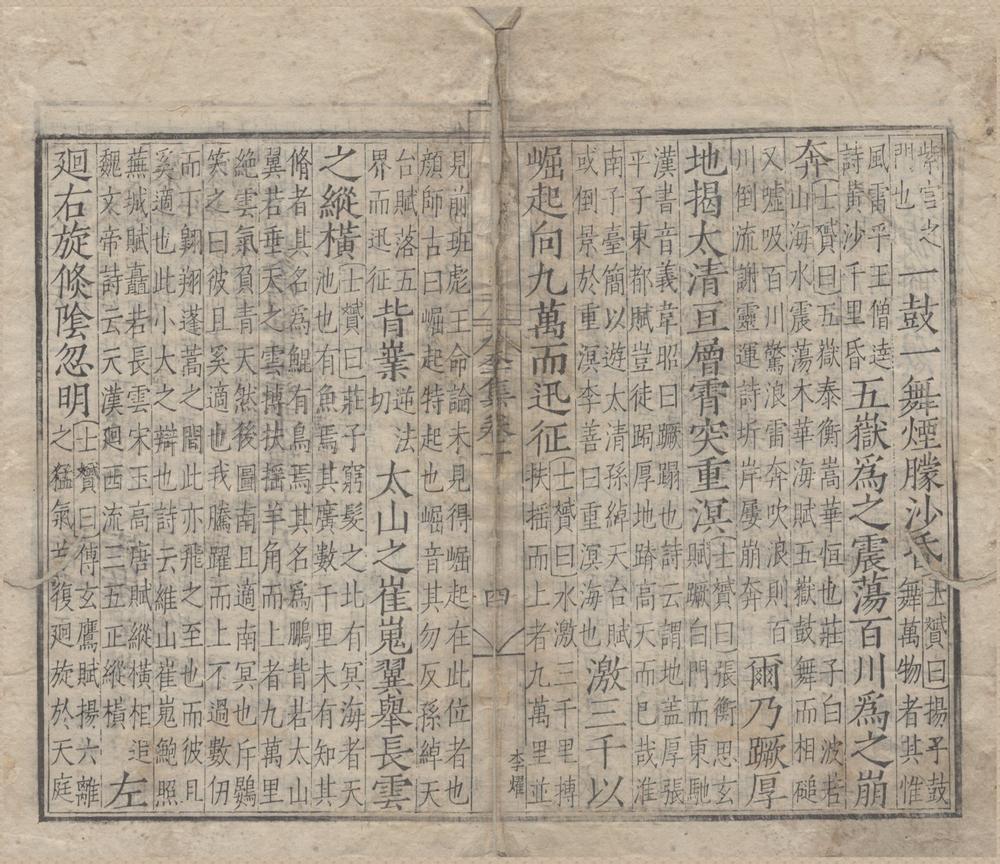 紫宮之
門也
一鼓一舞煙朦沙昏
士贇曰揚子鼓
舞萬物者其惟
風雷乎王僧達
詩黃沙千里昏
五嶽爲之震蕩百川爲之崩
奔
士贇曰五嶽泰衡嵩華恒也莊子白波若
山海水震蕩木華海賦五嶽鼓舞而相磓
又噓吸百川驚浪雷奔吹浪則百
川倒流謝靈運詩圻岸屢崩奔
爾乃蹶厚
地揭太清亘層霄突重溟
士贇曰張衡思玄
賦蹶白門而東馳
漢書音義韋昭曰蹶蹋也詩云謂地蓋厚張
平子東都賦豈徒跼厚地蹐高天而已哉淮
南子臺簡以遊太清孫綽天台賦
或倒景於重溟李善曰重溟海也
激三千以
崛起向九萬而迅征
士贇曰水激三千里摶
扶搖而上者九萬里並
全集卷一
四
李耀
見前班彪王命論未見得崛起在此位者也
顔師古曰崛起特起也崛音其勿反孫綽天
台賦落五
界而迅征
背嶪
逆法
切
太山之崔嵬翼舉長雲
之縱橫
士贇曰莊子窮髮之北有冥海者天
池也有魚焉其廣數千里未有知其
脩者其名爲鯤有鳥焉其名爲鵬背若太山
翼若垂天之雲摶扶搖羊角而上者九萬里
絕雲氣負青天然後圖南且適南冥也斥鷃
笑之曰彼且奚適也我騰躍而上不過數仞
而下翺翔蓬蒿之間此亦飛之至也而彼且
奚適也此小大之辯也詩云維山崔嵬鮑照
蕪城賦矗若長雲宋玉高唐賦縱橫相追
魏文帝詩云天漢廻西流三五正縱橫
左
廻右旋倐陰忽明
士贇曰傅玄鷹賦揚六離
之猛氣復廻旋於天庭